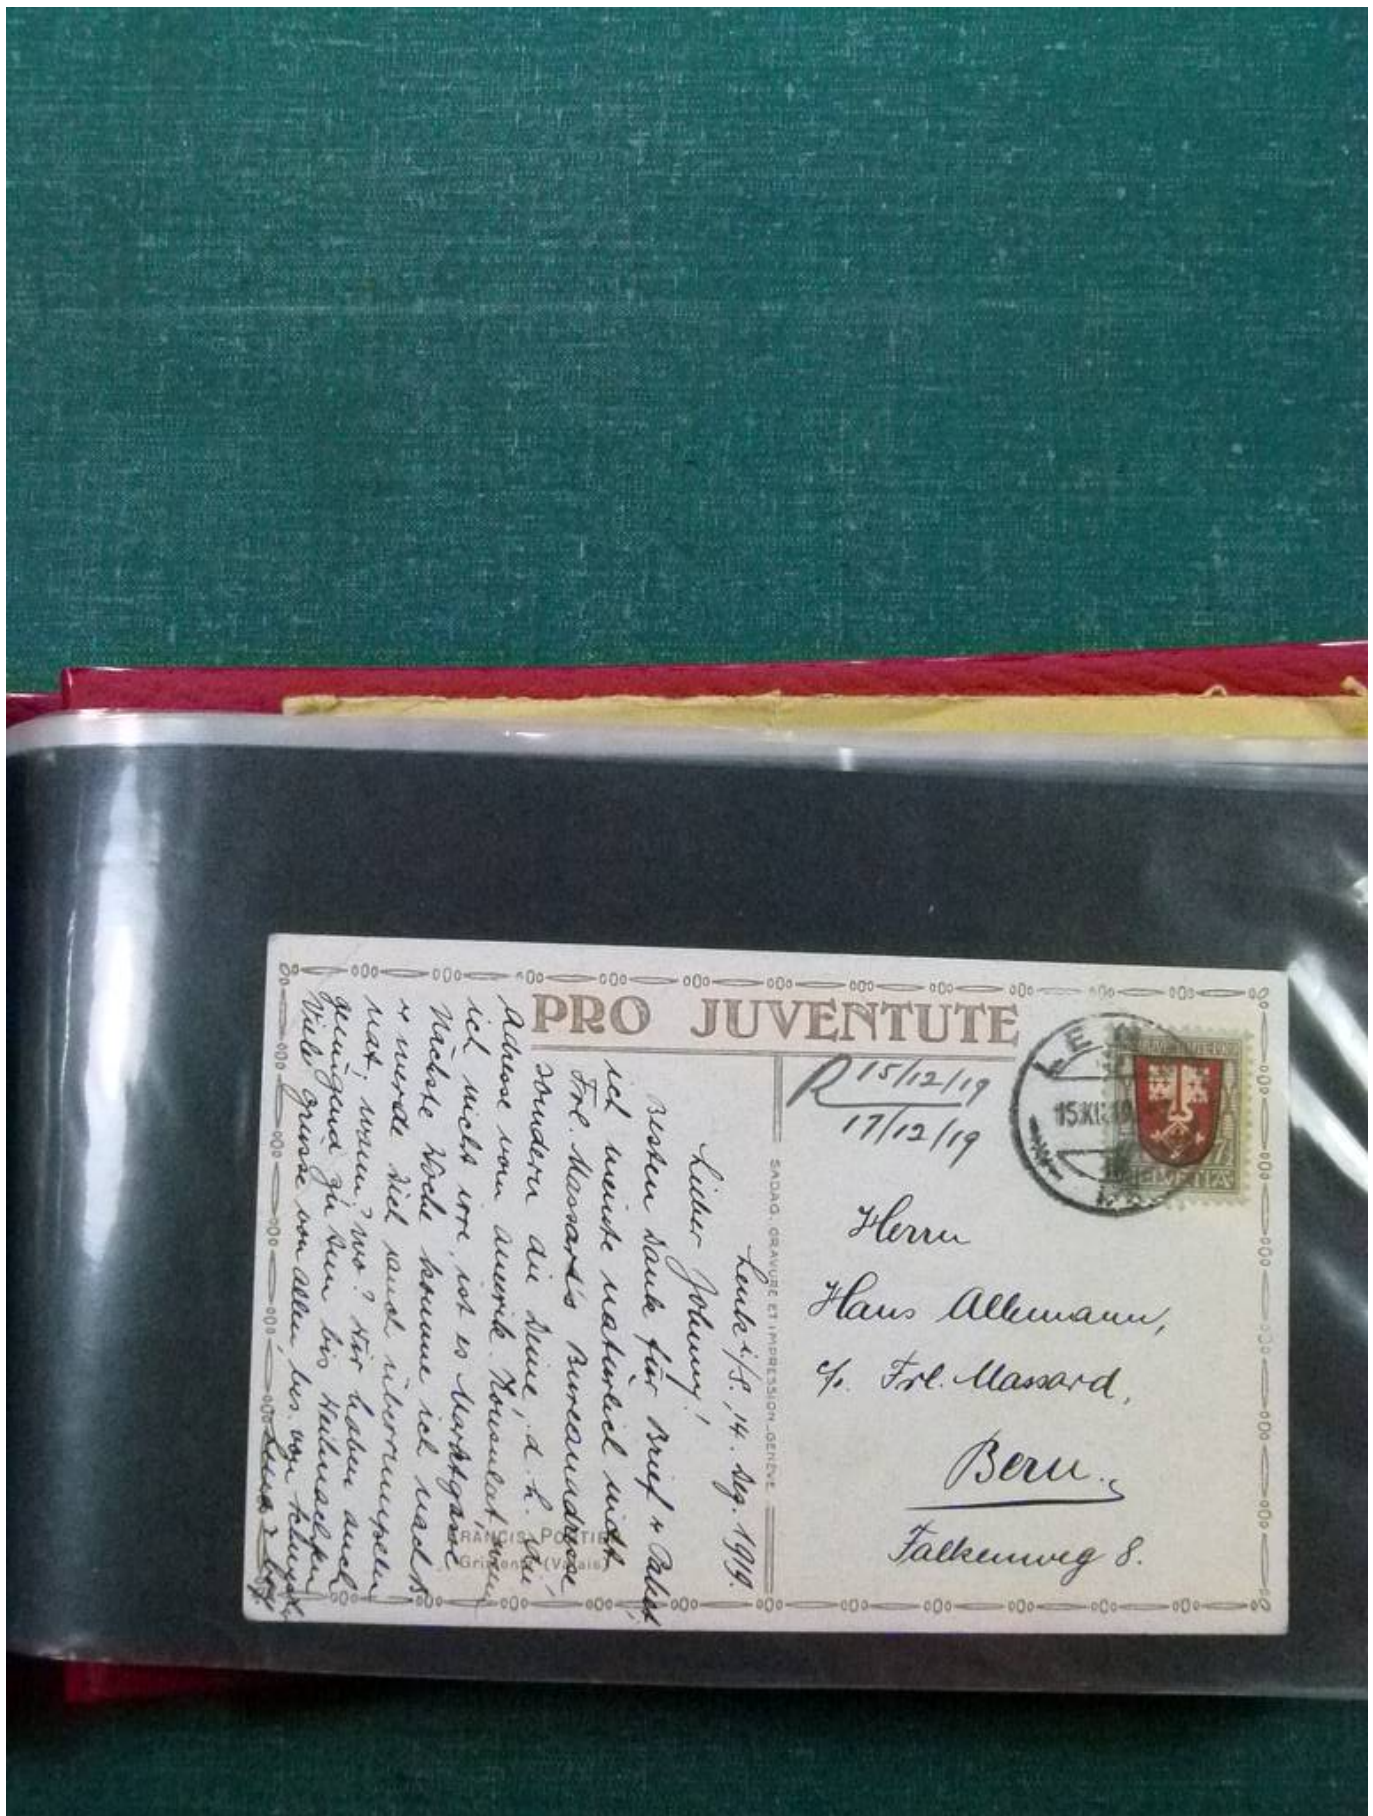 PRO JUVENTUTE
R 15/12/19
17/12/19
15.XII.19
HELVETIA
Herrn
Hans Allemann,
c/o. Frl. Massard,
Bern.
Falkenweg 8.
SADAG. GRAVURE ET IMPRESSION. GENÈVE
Lenk i/S., 14. Dez. 1919.
Lieber Johnny!
Besten Dank für Brief & Paket,
ich meinte natürlich nicht
Frl. Massard's Bureauadresse,
sondern die Deine, d. h. die
Adresse vom amerik. Konsulat, wenn
ich nicht irre, ist es Marktgasse
Nächste Woche komme ich nach B.
& werde Dich auch überrumpeln
wann? wo? Wir haben auch
genügend zu tun bis Weihnachten
Viele Grüsse von allen, bes. von
FRANCIS PORTIER
Grimentz (Valais)